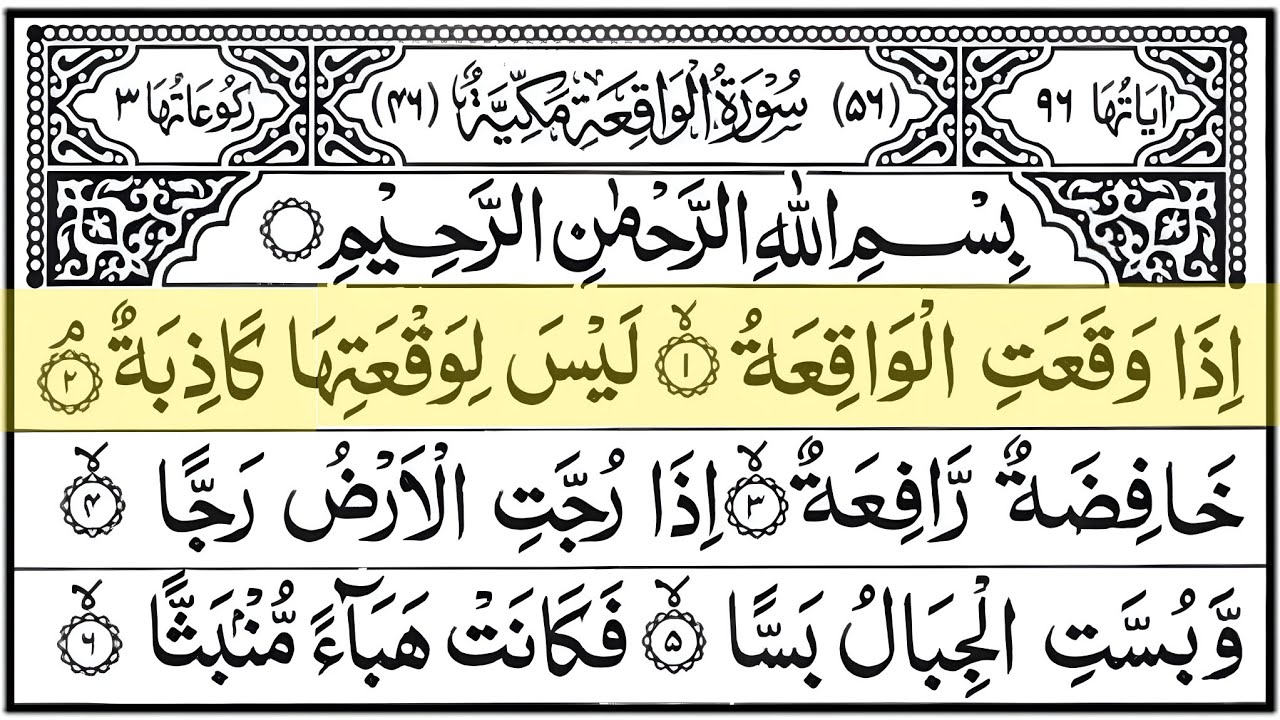 اٰیَاتُهَا ۹۶ (۵۶) سُوْرَةُ الْوَاقِعَةِ مَكِّیَّةٌ (۴۶) رُكُوْعَاتُهَا ۳
بِسْمِ اللّٰهِ الرَّحْمٰنِ الرَّحِیْمِ
اِذَا وَقَعَتِ الْوَاقِعَةُ ۙ‏﴿۱﴾ لَیْسَ لِوَقْعَتِهَا كَاذِبَةٌ ۘ‏﴿۲﴾
خَافِضَةٌ رَّافِعَةٌ ۙ‏﴿۳﴾ اِذَا رُجَّتِ الْاَرْضُ رَجًّا ۙ‏﴿۴﴾
وَّ بُسَّتِ الْجِبَالُ بَسًّا ۙ‏﴿۵﴾ فَكَانَتْ هَبَآءً مُّنْۢبَثًّا ۙ‏﴿۶﴾